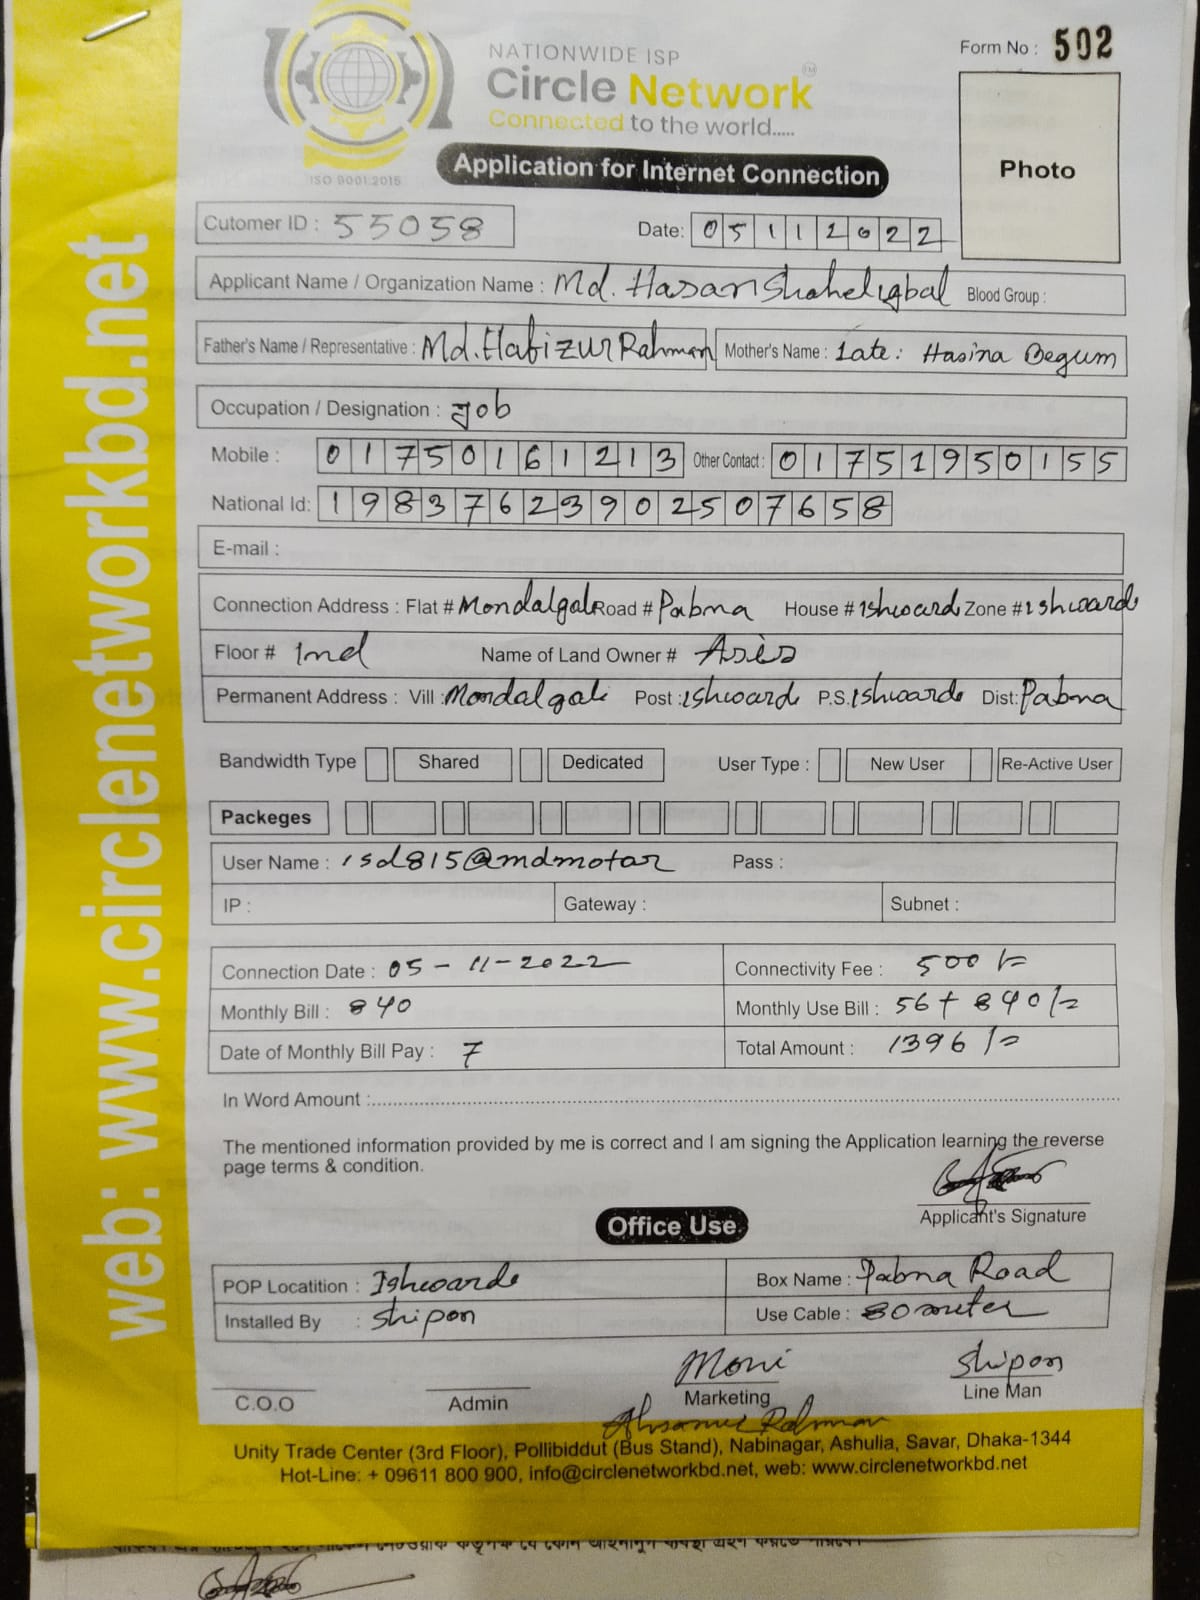 NATIONWIDE ISP
Circle Network TM
Connected to the world.....
ISO 9001:2015
Form No : 502
Photo
Application for Internet Connection
web: www.circlenetworkbd.net
Cutomer ID : 55058
Date: 05112022
Applicant Name / Organization Name : Md. Hasan Shahel iqbal Blood Group :
Father's Name / Representative : Md. Hafizur Rahman Mother's Name : Late: Hasina Begum
Occupation / Designation : Job
Mobile : 01750161213 Other Contact : 01751950155
National Id: 19837623902507658
E-mail :
Connection Address : Flat # Mondalgali Road # Pabna House # Ishwardi Zone # Ishwardi
Floor # 1nd Name of Land Owner # Asis
Permanent Address : Vill : Mondalgali Post : Ishwardi P.S. Ishwardi Dist: Pabna
Bandwidth Type Shared Dedicated User Type : New User Re-Active User
Packeges
User Name : isd815@mdmotar Pass :
IP : Gateway : Subnet :
Connection Date : 05-11-2022 Connectivity Fee : 500/=
Monthly Bill : 840 Monthly Use Bill : 56+840/=
Date of Monthly Bill Pay : 7 Total Amount : 1396/=
In Word Amount :
The mentioned information provided by me is correct and I am signing the Application learning the reverse
page terms & condition.
Applicant's Signature
Office Use
POP Locatition : Ishwardi Box Name : Pabna Road
Installed By : Shipon Use Cable : 80 meter
Moni Shipon
C.O.O Admin Marketing Line Man
Rahman
Unity Trade Center (3rd Floor), Pollibiddut (Bus Stand), Nabinagar, Ashulia, Savar, Dhaka-1344
Hot-Line: + 09611 800 900, info@circlenetworkbd.net, web: www.circlenetworkbd.net